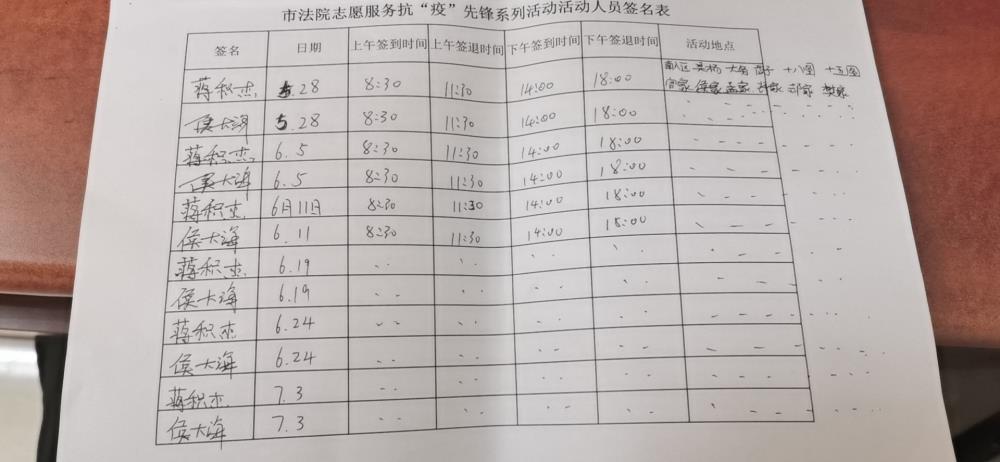 市法院志愿服务抗“疫”先锋系列活动活动人员签名表
签名 日期 上午签到时间 上午签退时间 下午签到时间 下午签退时间 活动地点
南八区 吴杨 大名 十八圈 十五圈
蒋积杰 5.28 8:30 11:30 14:00 18:00
侯大海 5.28 8:30 11:30 14:00 18:00
蒋积杰 6.5 8:30 11:30 14:00 18:00
侯大海 6.5 8:30 11:30 14:00 18:00
蒋积杰 6月11日 8:30 11:30 14:00 18:00
侯大海 6.11 8:30 11:30 14:00 18:00
蒋积杰 6.19
侯大海 6.19
蒋积杰 6.24
侯大海 6.24
蒋积杰 7.3
侯大海 7.3